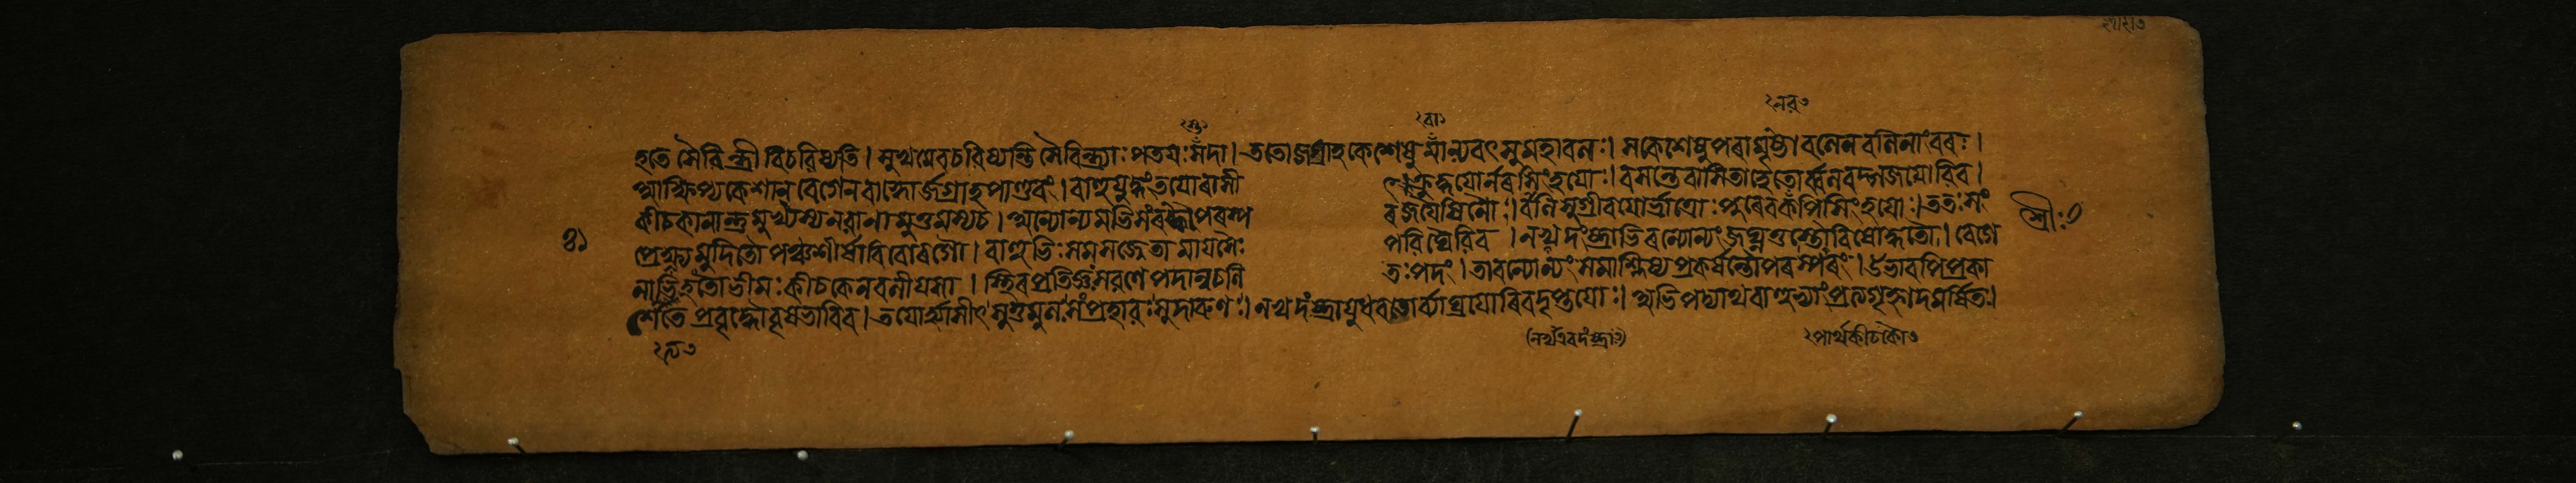 হতে সৈরিন্ধ্রী বিচরিষ্যতি। সুখমেবচরিষ্যন্তি সৈরিন্ধ্র্যাঃ পতয়ঃসদা। ততোজগ্রাহকেশেষুমাল্যবৎসুমহাবলঃ। সকেশেষুপরামৃষ্টোবলেনবলিনাংবরঃ।
আক্ষিপ্যকেশান্ বেগেনবাহ্বোর্জগ্রাহপাণ্ডবং। বাহুযুদ্ধংতয়োরাসীৎক্রুদ্ধয়োর্নরসিংহয়োঃ। বসন্তেবাসিতাহেতোর্বলবদ্গজয়োরিব।
কীচকানান্তুমুখ্যস্যনরাণামুত্তমস্যচ। অন্যোন্যমতিসংরব্ধৌপরস্পরজয়ৈষিণৌ। বালিসুগ্রীবয়োর্ভ্রাত্রোঃপুরেবকপিসিংহয়োঃ। ততঃসং
শ্রীঃ
প্রেক্ষ্যমুদিতৌ পঞ্চশীর্ষাবিবোরগৌ। বাহুভিঃসমসজ্জেতামায়সৈঃপরিঘৈরিব। নখদংষ্ট্রাভিরন্যোন্যংজঘ্নতুস্তৌবিষোদ্ধতৌ। বেগে
নাভিহতোভীমঃকীচকেনবলীয়সা। স্থিরপ্রতিজ্ঞঃসরণেপদান্নচলিতঃপদং। তাবন্যোন্যংসমাশ্লিষ্যপ্রকর্ষন্তৌপরস্পরং। উভাবপিপ্রকা
শেতেপ্রবৃদ্ধৌবৃষভাবিব। তয়োর্হ্যাসীৎসুতুমুলঃসংপ্রহারঃসুদারুণঃ। নখদংষ্ট্রায়ুধবতোর্ব্যাঘ্রয়োরিবদৃপ্তয়োঃ। অভিপত্যাথবাহুভ্যাংপ্রত্যগৃহ্ণাদমর্ষিতঃ।
পার্থকীচকৌ